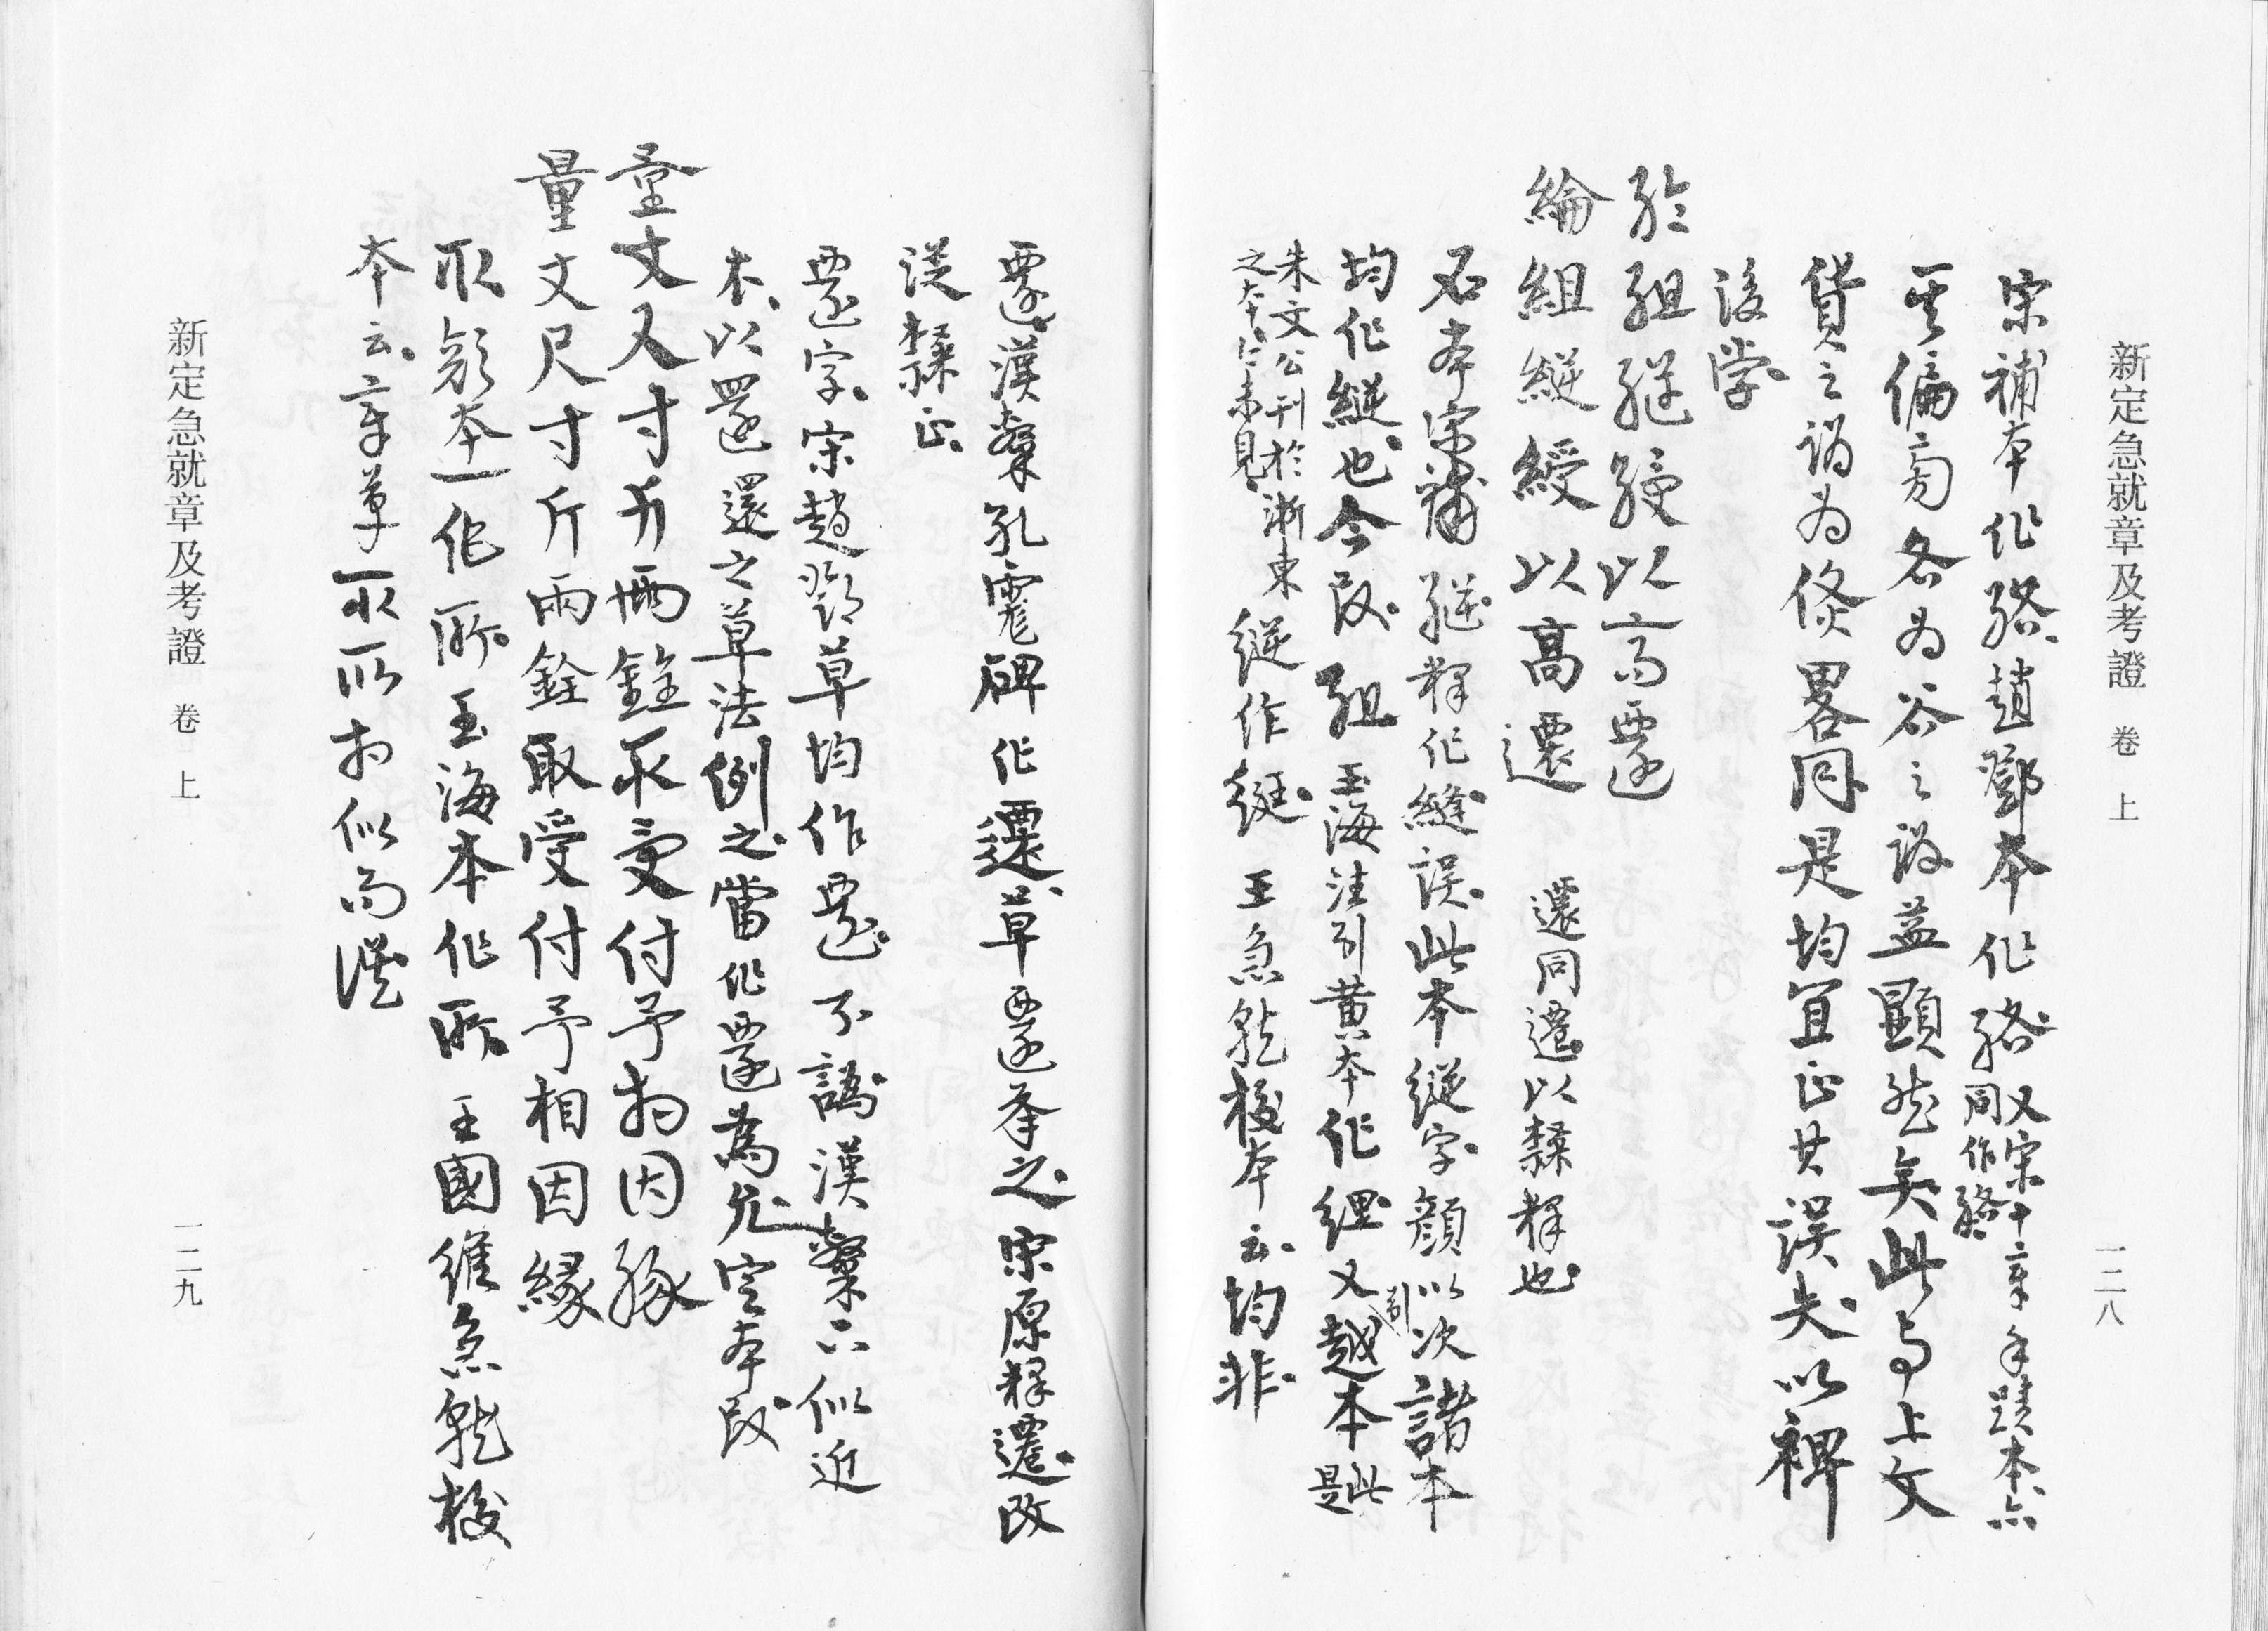 新定急就章及考證 卷上
一二八
宋補本作 趙鄧本作 又宋十章手蹟本亦同作
其偏旁各為谷之誤益顯然矣此与上文
貸之誤為倏畧同是均宜正其誤失以裨
後学
綸組縌綬以高遷
綸組縌綬以高遷 遷同遷以隸釋也
石本宋補 釋作縫誤此本縱字顏以次諸本
均作縱也今改 組玉海注引黃本作纆又引越本此是
朱文公刊於浙東之本仁未見 縱作綖 王急就校本云均非
遷漢㯥孔霍碑作䙴草遷本之宋原釋遷改
從隸正
遷字宋趙鄧草均作 不譌漢㯥亦似近
木以還還之草法例之當作遷為允空本改
量丈尺寸斤兩銓取受付予相因緣
量丈尺寸斤兩銓取受付予相因緣
取顏本一作所玉海本作所王國維急就校
本云章草取所相似而误
新定急就章及考證 卷上
一二九